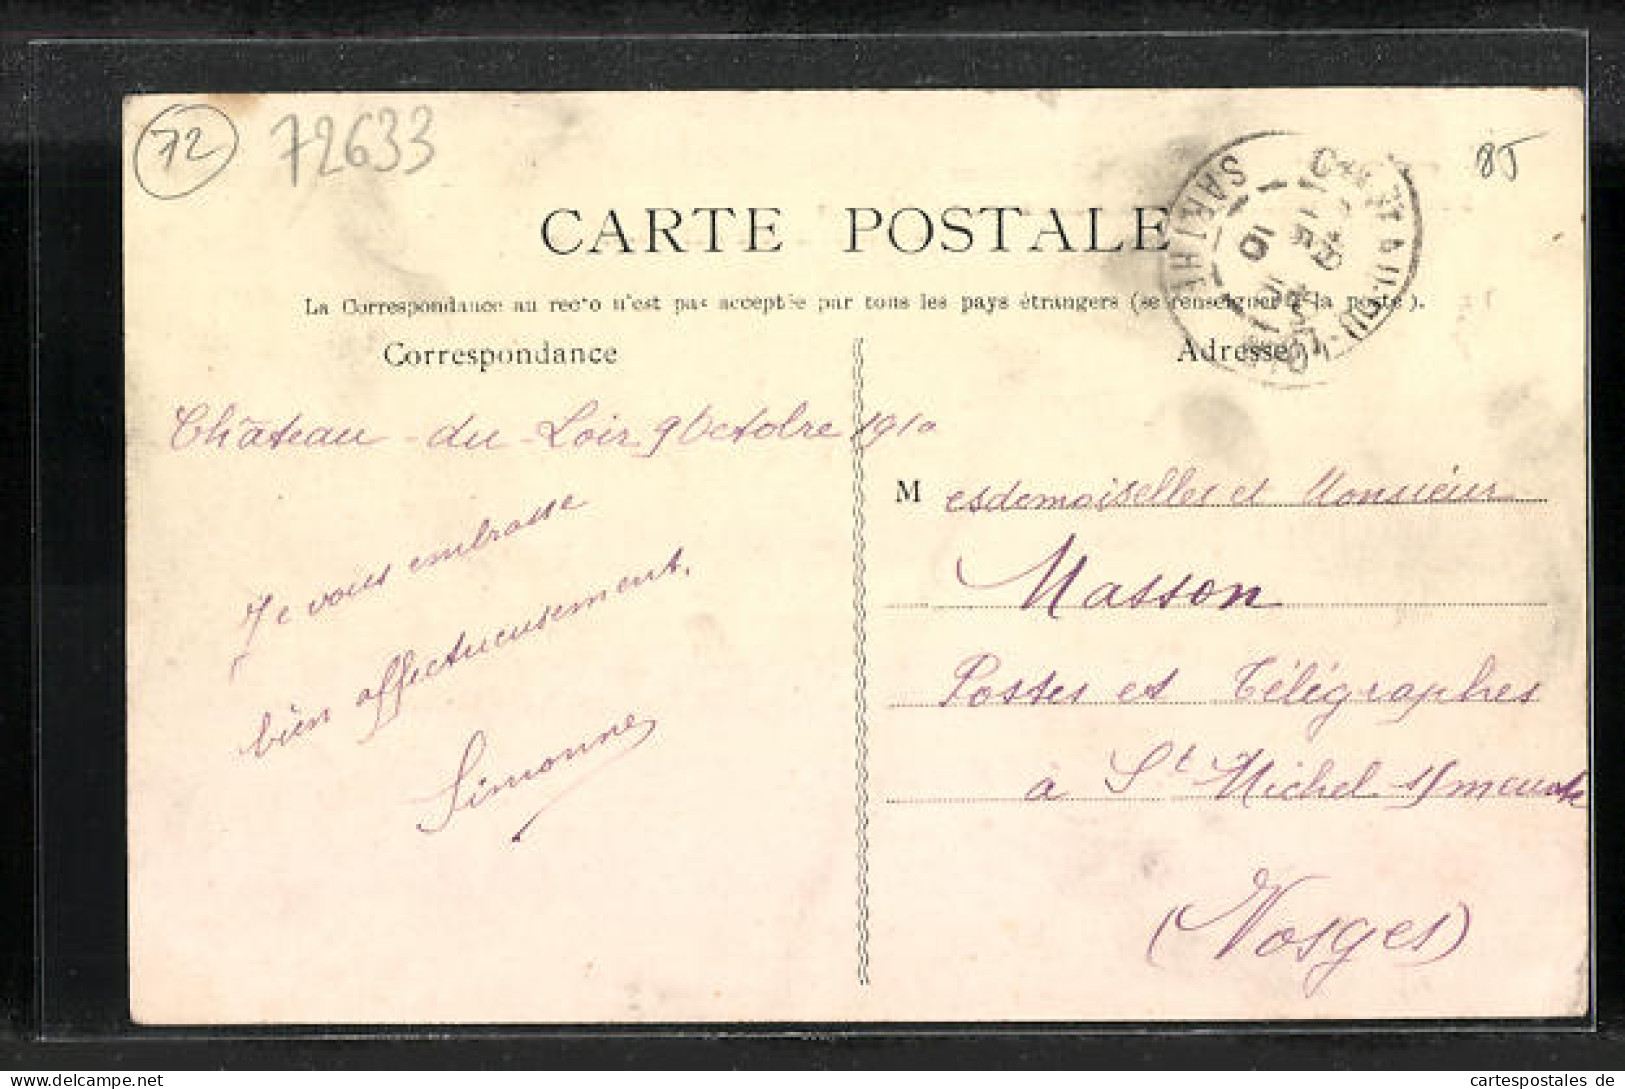 72
72633
85
CARTE POSTALE
La Correspondance au recto n'est pas acceptée par tous les pays étrangers (se renseigner à la poste).
Correspondance
Adresse
SARTHE
10
Château-du-Loir 9 Octobre 1910
Je vous embrasse
bien affectueusement.
Simonne
M esdemoiselles et Monsieur
Masson
Postes et Télégraphes
à St Michel s/ meurthe
(Vosges)
cartespostales de